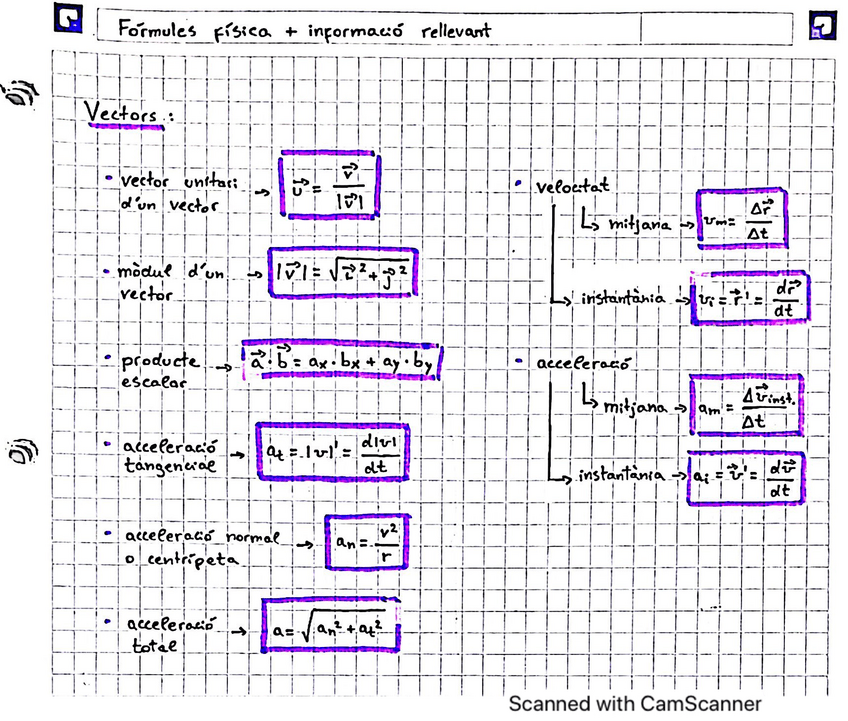 Fórmules física + informació rellevant
Vectors :
• vector unitari d'un vector → $\vec{u} = \frac{\vec{v}}{|\vec{v}|}$
• mòdul d'un vector → $|\vec{v}| = \sqrt{\vec{i}^2 + \vec{j}^2}$
• producte escalar → $\vec{a} \cdot \vec{b} = a_x \cdot b_x + a_y \cdot b_y$
• acceleració tangencial → $a_t = |v|' = \frac{d|v|}{dt}$
• acceleració normal o centrípeta → $a_n = \frac{v^2}{r}$
• acceleració total → $a = \sqrt{a_n^2 + a_t^2}$
• velocitat
↳ mitjana → $v_m = \frac{\Delta \vec{r}}{\Delta t}$
↳ instantània → $v_i = \vec{r}' = \frac{d\vec{r}}{dt}$
• acceleració
↳ mitjana → $a_m = \frac{\Delta \vec{v}_{inst.}}{\Delta t}$
↳ instantània → $a_i = \vec{v}' = \frac{d\vec{v}}{dt}$
Scanned with CamScanner